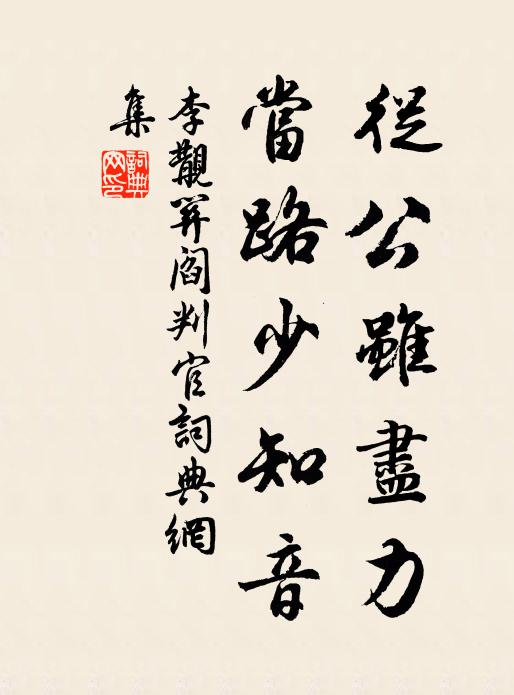 從公雖盡力
當路少知音
李閻判官詞典網
集
詞典
网印